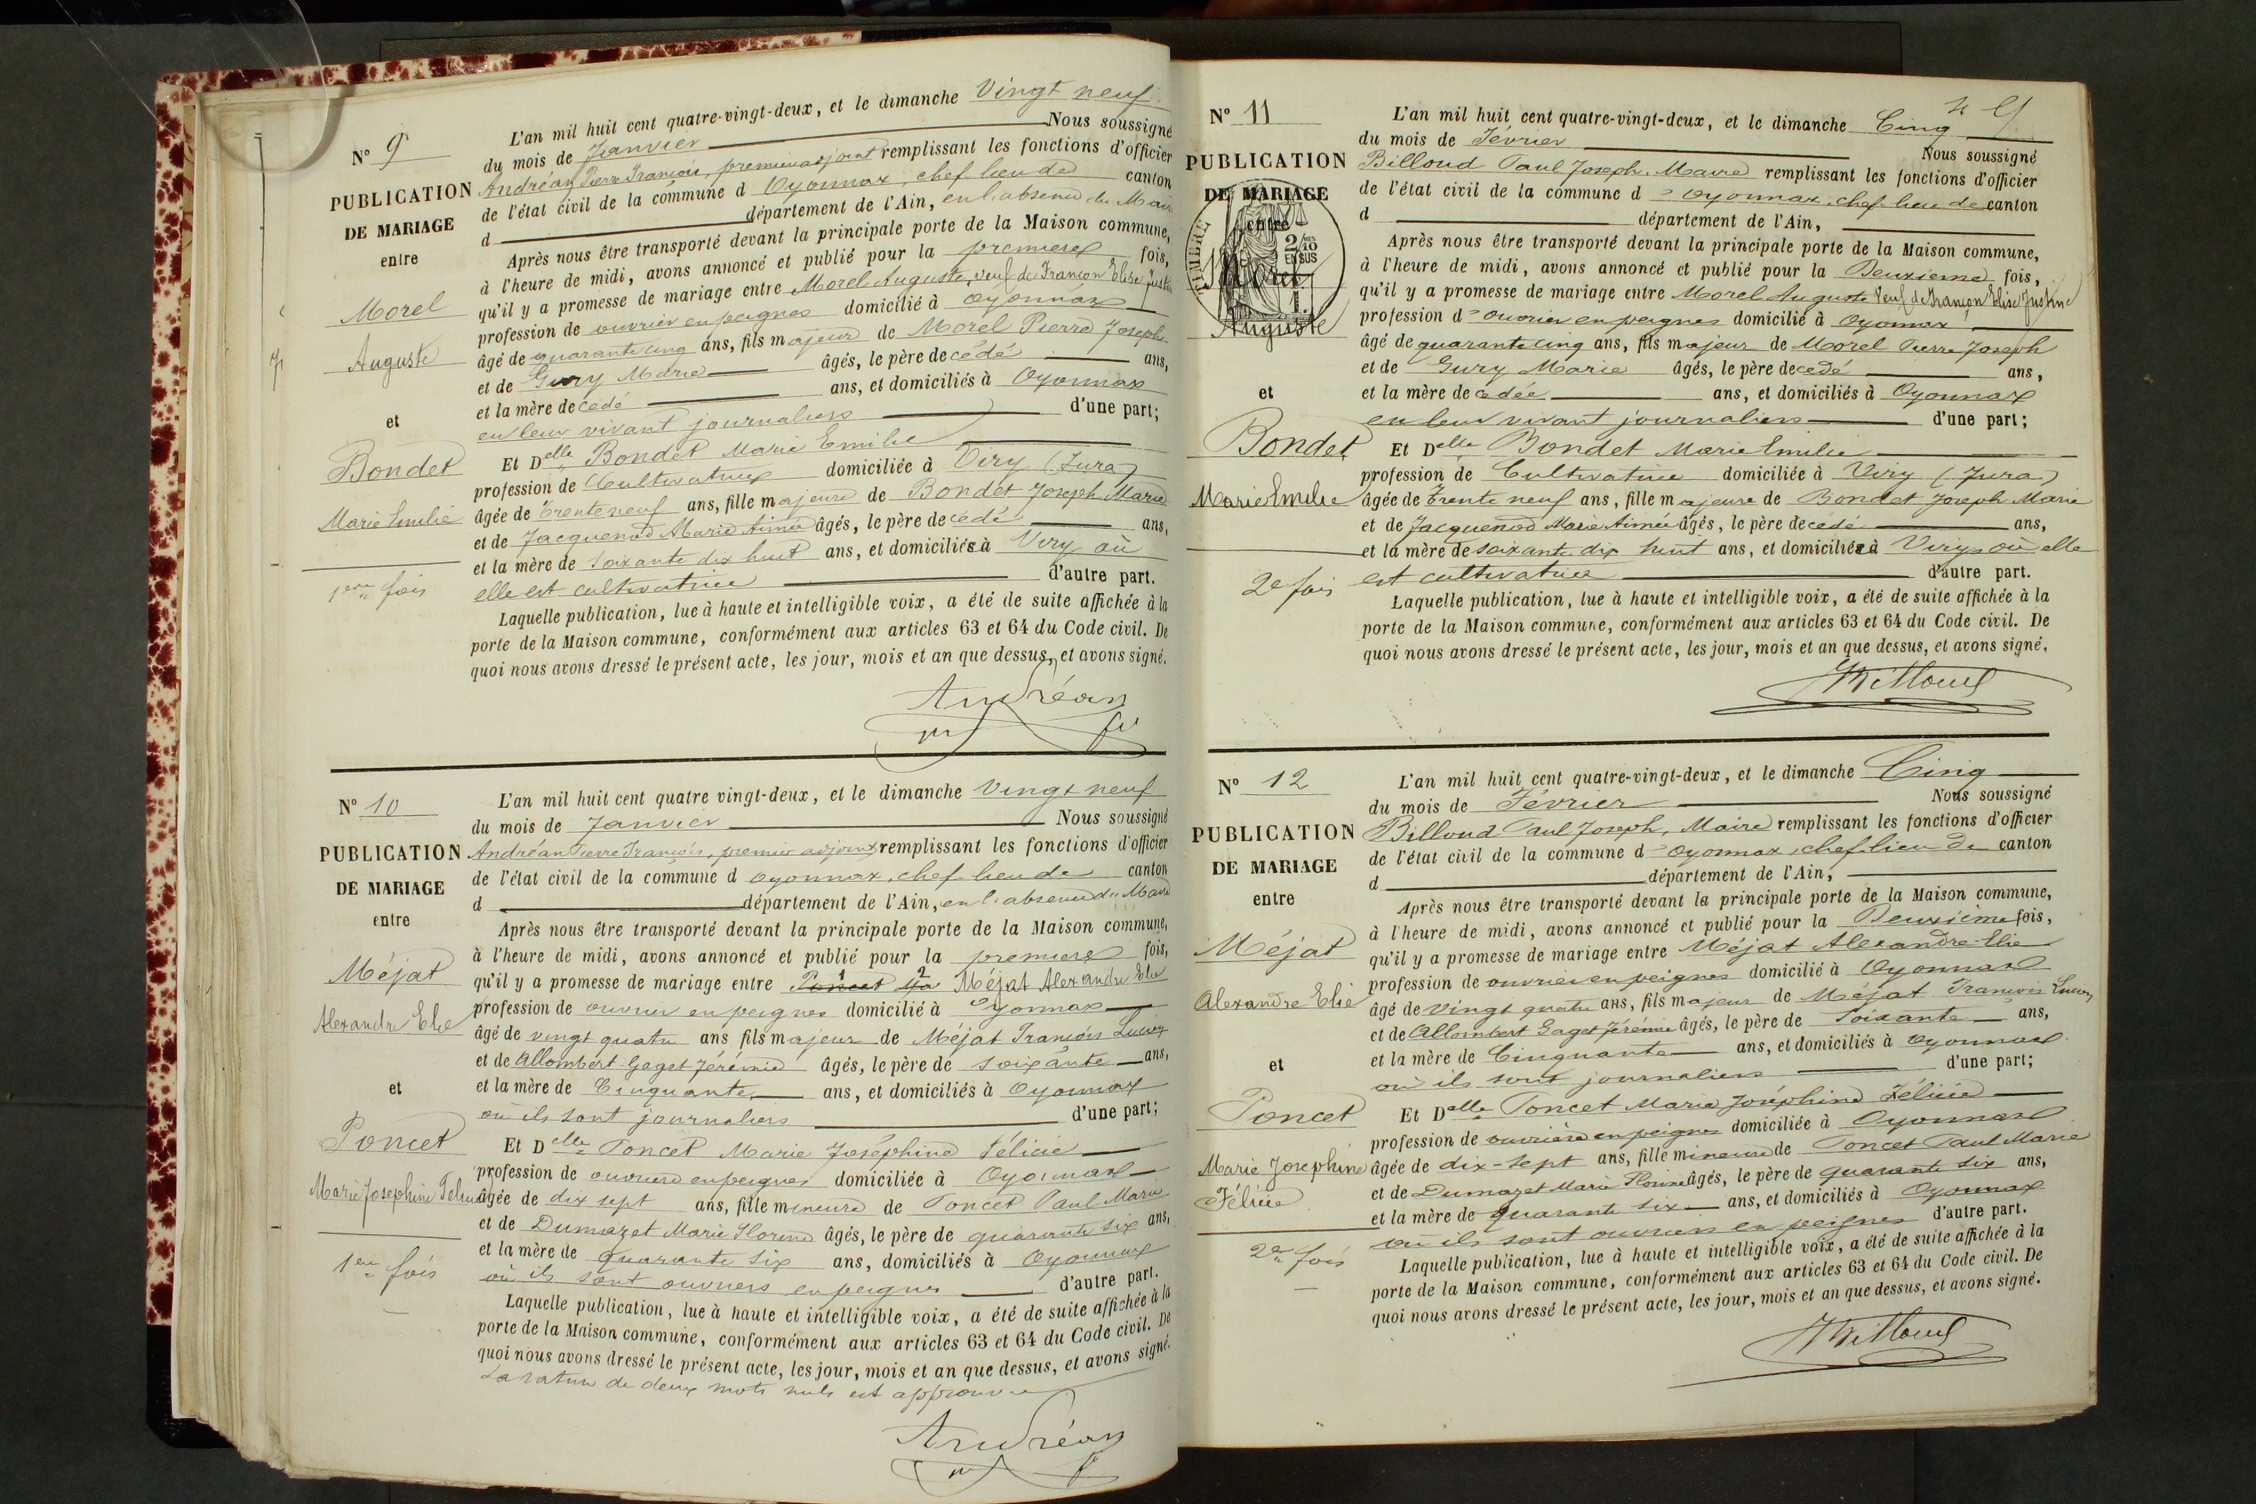 N° 9
PUBLICATION
DE MARIAGE
entre
Morel
Auguste
et
Bondet
Marie Emilie
1ere fois
L'an mil huit cent quatre-vingt-deux, et le dimanche Vingt neuf
du mois de Janvier Nous soussigné
Andréan Pierre François, premier adjoint remplissant les fonctions d'officier
de l'état civil de la commune d Oyonnax, chef lieu de canton
d département de l'Ain, en l'absence du Maire
Après nous être transporté devant la principale porte de la Maison commune,
à l'heure de midi, avons annoncé et publié pour la premiere fois,
qu'il y a promesse de mariage entre Morel Auguste, veuf de Françon Elise Justine
profession de ouvrier en peignes domicilié à Oyonnax
âgé de quarante cinq ans, fils majeur de Morel Pierre Joseph
et de Gury Marie âgés, le père decédé ans,
et la mère decedé ans, et domiciliés à Oyonnax
en leur vivant journaliers d'une part;
Et Delle Bondet Marie Emilie
profession de Cultivatrice domiciliée à Viry (Jura)
âgée de trente neuf ans, fille majeure de Bondet Joseph Marie
et de Jacquenod Marie Aimée âgés, le père decédé ans,
et la mère de soixante dix huit ans, et domiciliés à Viry où
elle est cultivatrice d'autre part.
Laquelle publication, lue à haute et intelligible voix, a été de suite affichée à la
porte de la Maison commune, conformément aux articles 63 et 64 du Code civil. De
quoi nous avons dressé le présent acte, les jour, mois et an que dessus, et avons signé.
Andréan
N° 10
PUBLICATION
DE MARIAGE
entre
Méjat
Alexandre Elie
et
Poncet
Marie Josephine Felicie
1ere fois
L'an mil huit cent quatre vingt-deux, et le dimanche Vingt neuf
du mois de Janvier Nous soussigné
Andréan Pierre François, premier adjoint remplissant les fonctions d'officier
de l'état civil de la commune d Oyonnax, chef lieu de canton
d département de l'Ain, en l'absence du Maire
Après nous être transporté devant la principale porte de la Maison commune,
à l'heure de midi, avons annoncé et publié pour la premiere fois,
qu'il y a promesse de mariage entre Poncet Méjat Alexandre Elie
profession de ouvrier en peignes domicilié à Oyonnax
âgé de vingt quatre ans fils majeur de Méjat François Lucien
et de Allombert-Goget Jérémie âgés, le père de soixante ans,
et la mère de Cinquante ans, et domiciliés à Oyonnax
où ils sont journaliers d'une part;
Et Delle Poncet Marie Joséphine Félicie
profession de ouvrière en peignes domiciliée à Oyonnax
âgée de dix sept ans, fille mineure de Poncet Paul Marie
et de Dumazet Marie Florine âgés, le père de quarante six ans,
et la mère de quarante six ans, domiciliés à Oyonnax
où ils sont ouvriers en peignes d'autre part.
Laquelle publication, lue à haute et intelligible voix, a été de suite affichée à la
porte de la Maison commune, conformément aux articles 63 et 64 du Code civil. De
quoi nous avons dressé le présent acte, les jour, mois et an que dessus, et avons signé.
La rature de deux mots nuls est approuvée
Andréan
N° 11
PUBLICATION
DE MARIAGE
entre
TIMBRE
2/10
EN SUS
Morel
Auguste
et
Bondet
Marie Emilie
2e fois
L'an mil huit cent quatre-vingt-deux, et le dimanche Cinq
du mois de Février Nous soussigné
Billoud Paul Joseph, Maire remplissant les fonctions d'officier
de l'état civil de la commune d'Oyonnax, chef lieu de canton
d département de l'Ain,
Après nous être transporté devant la principale porte de la Maison commune,
à l'heure de midi, avons annoncé et publié pour la Deuxieme fois,
qu'il y a promesse de mariage entre Morel Auguste Veuf de Françon Elise Justine
profession d'ouvrier en peignes domicilié à Oyonnax
âgé de quarante cinq ans, fils majeur de Morel Pierre Joseph
et de Gury Marie âgés, le père decedé ans,
et la mère decedée ans, et domiciliés à Oyonnax
en leur vivant journaliers d'une part;
Et Delle Bondet Marie Emilie
profession de Cultivatrice domiciliée à Viry (Jura)
âgée de trente neuf ans, fille majeure de Bondet Joseph Marie
et de Jacquenod Marie Aimée âgés, le père decédé ans,
et la mère de soixante dix huit ans, et domiciliés à Viry où elle
est cultivatrice d'autre part.
Laquelle publication, lue à haute et intelligible voix, a été de suite affichée à la
porte de la Maison commune, conformément aux articles 63 et 64 du Code civil. De
quoi nous avons dressé le présent acte, les jour, mois et an que dessus, et avons signé.
Billoud
N° 12
PUBLICATION
DE MARIAGE
entre
Méjat
Alexandre Elie
et
Poncet
Marie Josephine
Félicie
2e fois
L'an mil huit cent quatre-vingt-deux, et le dimanche Cinq
du mois de Février Nous soussigné
Billoud Paul Joseph, Maire remplissant les fonctions d'officier
de l'état civil de la commune d'Oyonnax, chef lieu de canton
d département de l'Ain,
Après nous être transporté devant la principale porte de la Maison commune,
à l'heure de midi, avons annoncé et publié pour la Deuxième fois,
qu'il y a promesse de mariage entre Méjat Alexandre Elie
profession de ouvrier en peignes domicilié à Oyonnax
âgé de vingt quatre ans, fils majeur de Méjat François Lucien
et de Allombert Goget Jérémie âgés, le père de Soixante ans,
et la mère de Cinquante ans, et domiciliés à Oyonnax
où ils sont journaliers d'une part;
Et Delle Poncet Marie Joséphine Félicie
profession de ouvrière en peignes domiciliée à Oyonnax
âgée de dix-sept ans, fille mineure de Poncet Paul Marie
et de Dumazet Marie Florine âgés, le père de quarante six ans,
et la mère de quarante six ans, et domiciliés à Oyonnax
où ils sont ouvriers en peignes d'autre part.
Laquelle publication, lue à haute et intelligible voix, a été de suite affichée à la
porte de la Maison commune, conformément aux articles 63 et 64 du Code civil. De
quoi nous avons dressé le présent acte, les jour, mois et an que dessus, et avons signé.
Billoud